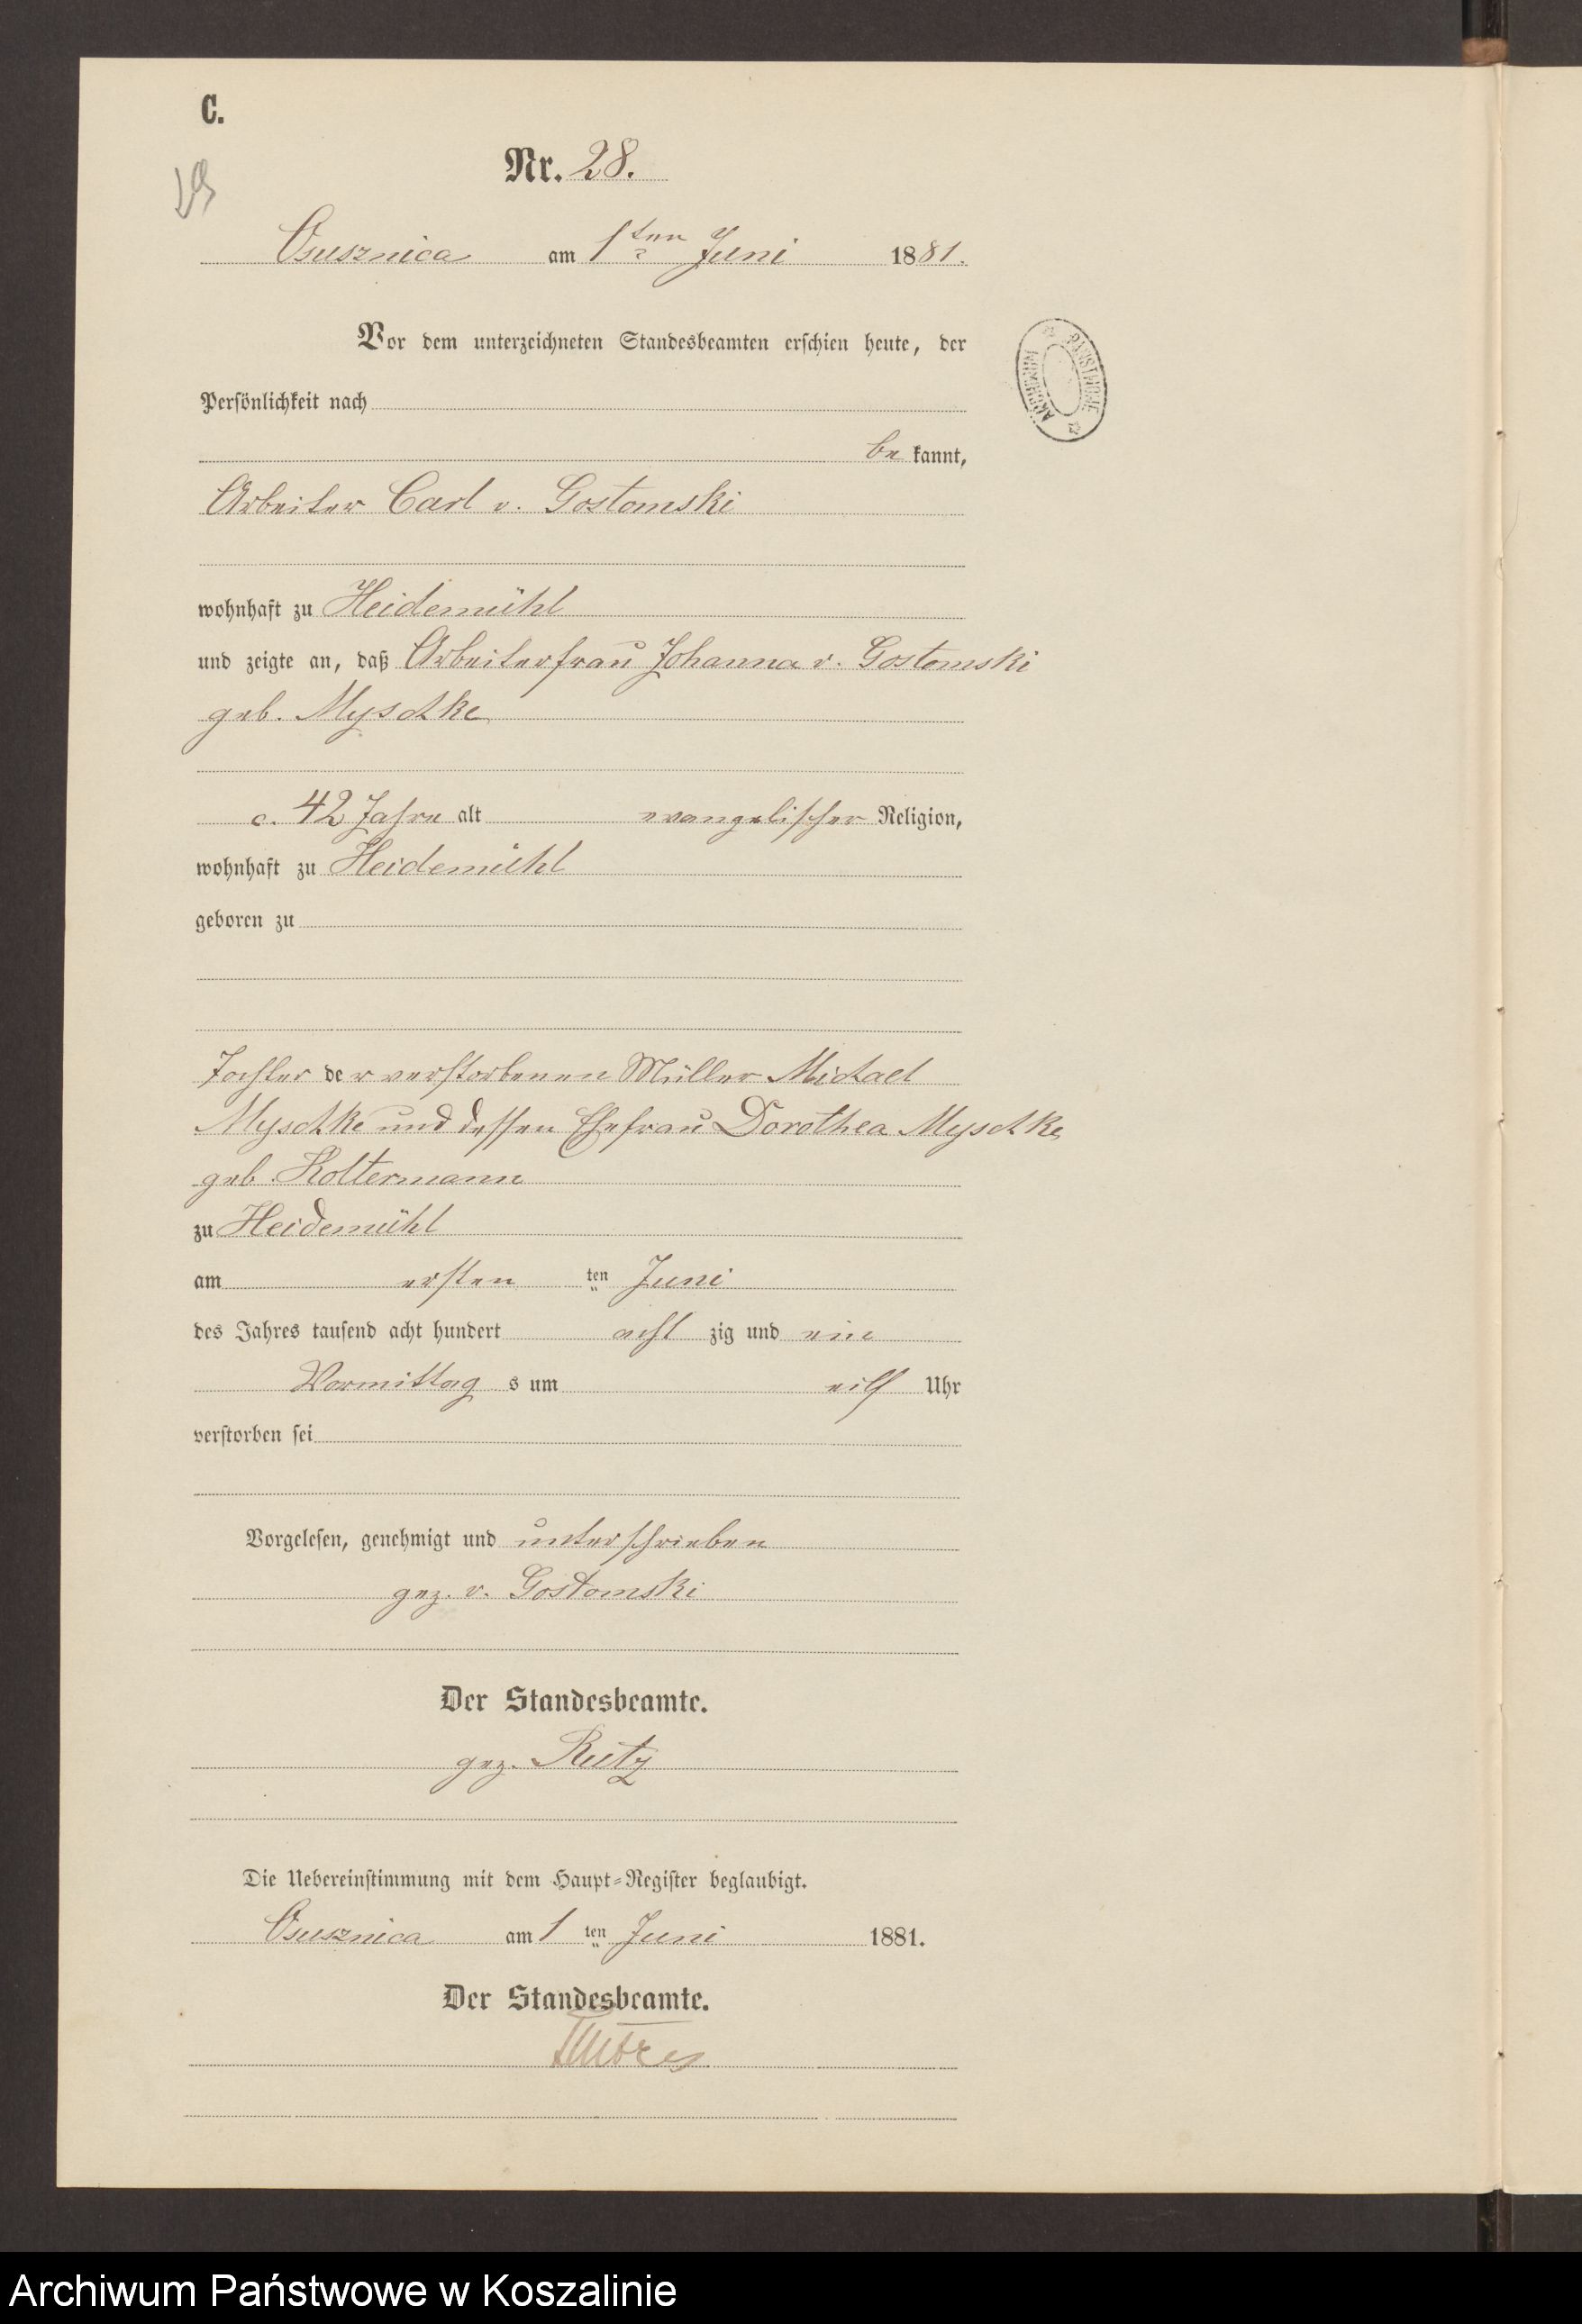 C.
Nr. 28.
Osusznica am 1ten Juni 1881.
Vor dem unterzeichneten Standesbeamten erschien heute, der
Persönlichkeit nach
bekannt,
Arbeiter Carl v. Gostomski
wohnhaft zu Heidemühl
und zeigte an, daß Arbeiterfrau Johanna v. Gostomski
geb. Myschke
c. 42 Jahre alt evangelischer Religion,
wohnhaft zu Heidemühl
geboren zu
Tochter der verstorbenen Müller Michael
Myschke und dessen Ehefrau Dorothea Myschke
geb. Koltermann
zu Heidemühl
am ersten ten Juni
des Jahres tausend acht hundert acht zig und ein
Vormittag s um eilf Uhr
verstorben sei
Vorgelesen, genehmigt und unterschrieben
gez. v. Gostomski
Der Standesbeamte.
gez. Rutz
Die Uebereinstimmung mit dem Haupt-Register beglaubigt.
Osusznica am 1 ten Juni 1881.
Der Standesbeamte.
ARCHIWUM PAŃSTWOWE
Archiwum Państwowe w Koszalinie